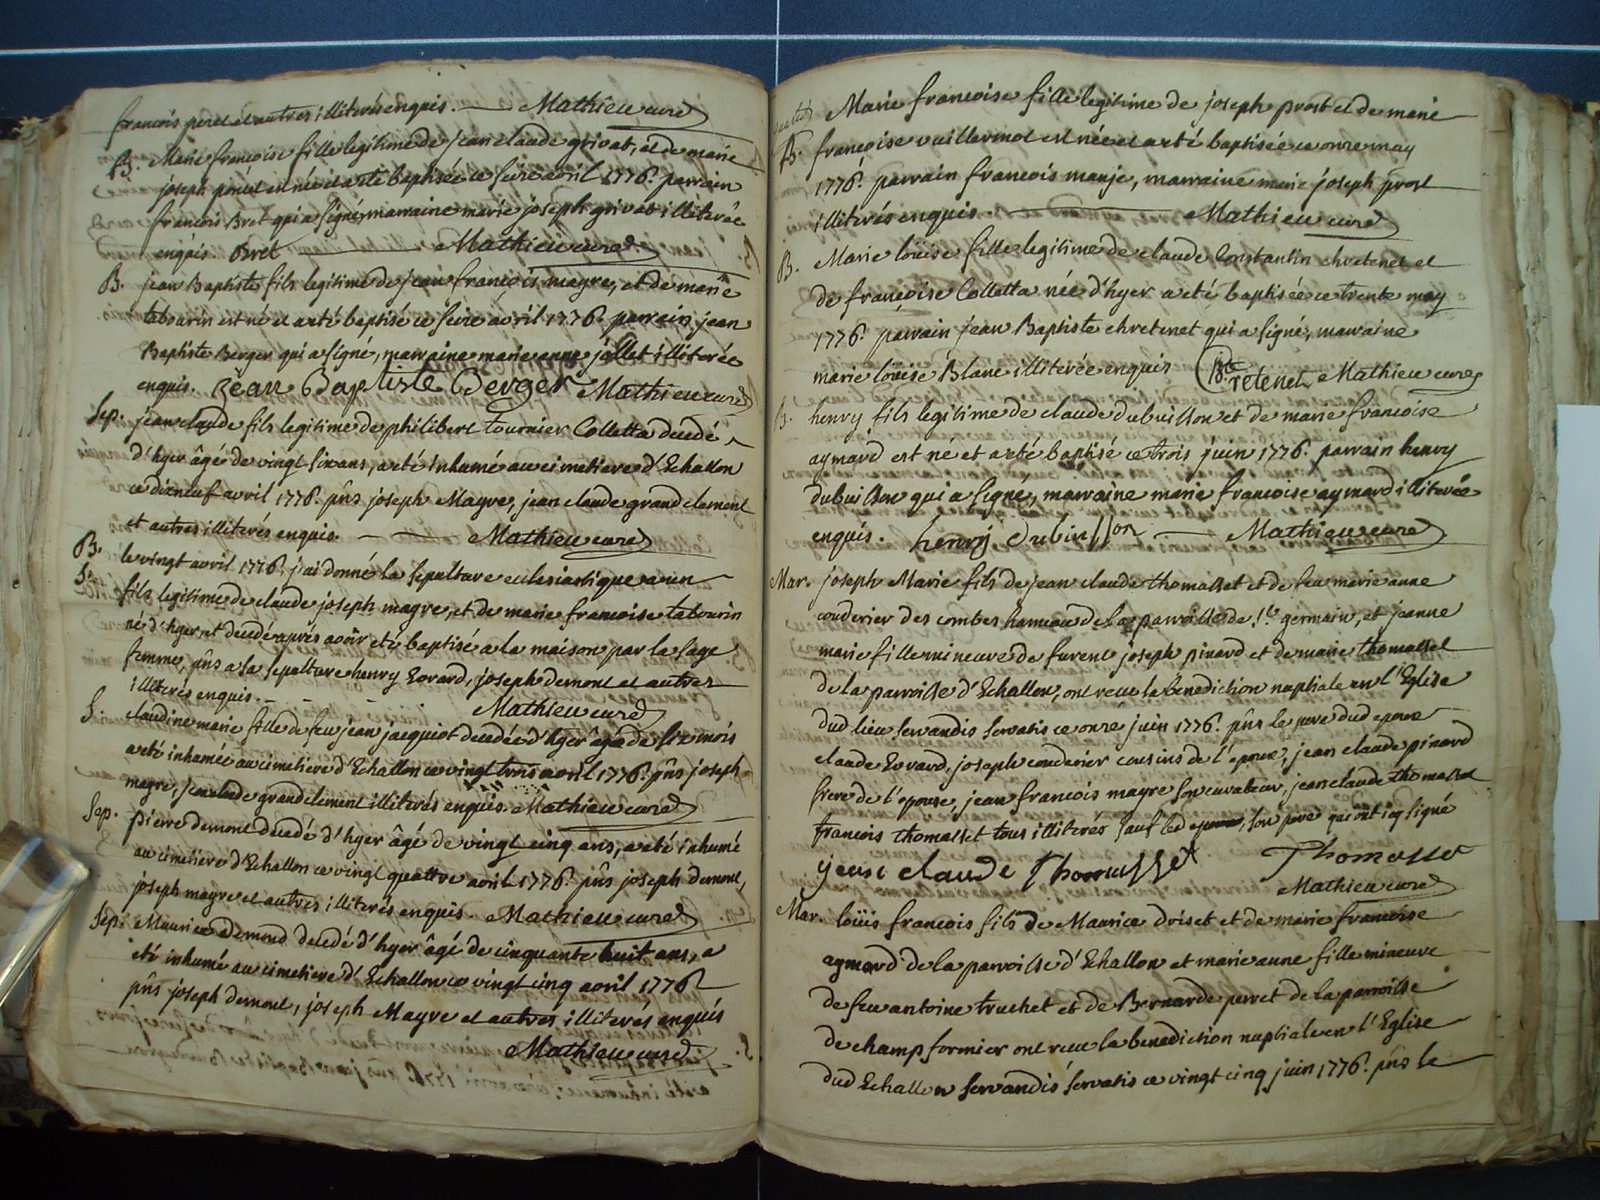 francois perret et autres illiterés enquis. Mathieu curé
B. Marie francoise fille legitime de jean claude grivat, et de marie
joseph poncet est née et a eté baptisée ce seize avril 1776. parrain
francois Bret qui a signé, marraine marie joseph grivat illiterée
enquis. Bret Mathieu curé
B. jean Baptiste fils legitime de jean francois mayre, et de marie
tabourin est né et a eté baptisé ce seize avril 1776. parrain jean
Baptiste Berger qui a signé, marraine marie anne jollet illiterée
enquis. Jean Baptiste Berger Mathieu curé
Sep. jean claude fils legitime de philibert tournier Colletta decedé
d'hyer âgé de vingt six ans, a eté inhumé au cimetiere d'Echallon
ce dixneuf avril 1776. pñs joseph Mayre, jean claude grandclement
et autres illiterés enquis. Mathieu curé
B. le vingt avril 1776. j'ai donné la sepulture eclesiastique a un
S. fils legitime de claude joseph mayre, et de marie francoise tabourin
né d'hyer et decedé aprés avoir eté baptisé a la maison par la sage
femme, pñs a sa sepulture henry Evrard, joseph demont et autres
illiterés enquis. Mathieu curé
S. claudine marie fille de feu jean jacquiot decedée d'hyer âgée de six mois
a eté inhumée au cimetiere d'Echallon ce vingt trois avril 1776. pñs joseph
mayre, jean claude grandclement illiterés enquis. Mathieu curé
Sep. pierre demont decedé d'hyer âgé de vingt cinq ans, a eté inhumé
au cimetiere d'Echallon ce vingt quattre avril 1776. pñs joseph demont,
joseph mayre et autres illiterés enquis. Mathieu curé
Sep. Maurice demond decedé d'hyer âgé de cinquante huit ans, a
eté inhumé au cimetiere d'Echallon ce vingt cinq avril 1776
pñs joseph demont, joseph Mayre et autres illiterés enquis
Mathieu curé
Marie francoise fille legitime de joseph prost et de marie
B. francoise vuillermoz est née et a eté baptisée ce onze may
1776. parrain francois manje, marraine marie joseph prost
illiterés enquis. Mathieu curé
B. Marie loüise fille legitime de claude Constantin chretenet et
de françoise Colletta née d'hyer a eté baptisée ce trente may
1776. parrain jean Baptiste chretenet qui a signé, marraine
marie loüise Blanc illiterée enquis Mathieu curé
B. henry fils legitime de claude dubuisson et de marie francoise
aymard est né et a eté baptisé ce trois juin 1776. parrain henry
dubuisson qui a signé, marraine marie francoise aymard illiterée
enquis. henrij dubuisson Mathieu curé
Mar. joseph Marie fils de jean claude thomasset et de feu marie anne
couderier des combes hameau de la parroisse de St. germain, et jeanne
marie fille mineure de furent joseph pinard et de marie thomasset
de la parroisse d'Echallon, ont recue la benediction nuptiale en l'Eglise
dud lieu servandis servatis ce onze juin 1776. pñs le pere dud epoux
claude Evrard, joseph couderier cousins de l'epoux, jean claude pinard
frere de l'epouse, jean francois mayre son curateur, jean claude thomasset
francois thomasset tous illiterés sauf led epoux, son pere qui ont icy signé
jean claude Thomasset Thomasse
Mathieu curé
Mar. loüis francois fils de Maurice doiset et de marie francoise
aymard de la parroisse d'Echallon et marie anne fille mineure
de feu antoine truchet et de Bernarde perret de la parroisse
de champ formier ont recue la benediction nuptiale en l'Eglise
dud Echallon servandis servatis ce vingt cinq juin 1776. pñs le